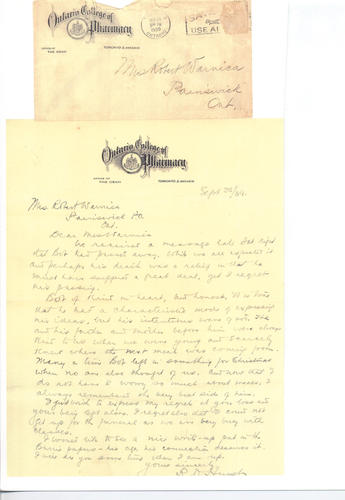 Ontario College of
Pharmacy
OFFICE OF
THE DEAN
TORONTO 2, ONTARIO
Mrs Robert Warnica
Painswick
Ont.
Ontario College of
Pharmacy
OFFICE OF
THE DEAN
TORONTO 2, ONTARIO
Sept 25/34.
Mrs Robert Warnica
Painswick PO.
Ont.
Dear Mrs Warnica
We received a message late last night
that Bob had passed away. While we all expected it
and perhaps his death was a relief in that he
must have suffered a great deal, yet I regret
his passing.
Bob was kind in heart, and honest.
that he had a characteristic mode of expressing
his ideas, but his intentions were of the
and his father and mother before him were always
kind to us when we were young and scarcely
knew where the next meal was coming from.
Many a time Bob left in something for Christmas
when no one else thought of us. But now that I
do not have to worry so much about meals, I
always remember the very best side of him.
I just wish to express my regret at your loss and
your being left alone. I regret also that I could not
get up for the funeral as we are very busy with
classes.
I would like to see a nice write-up put in the
Barrie papers - his age, his connection deserves it.
I will see you some time when I am up.
Yours sincerely